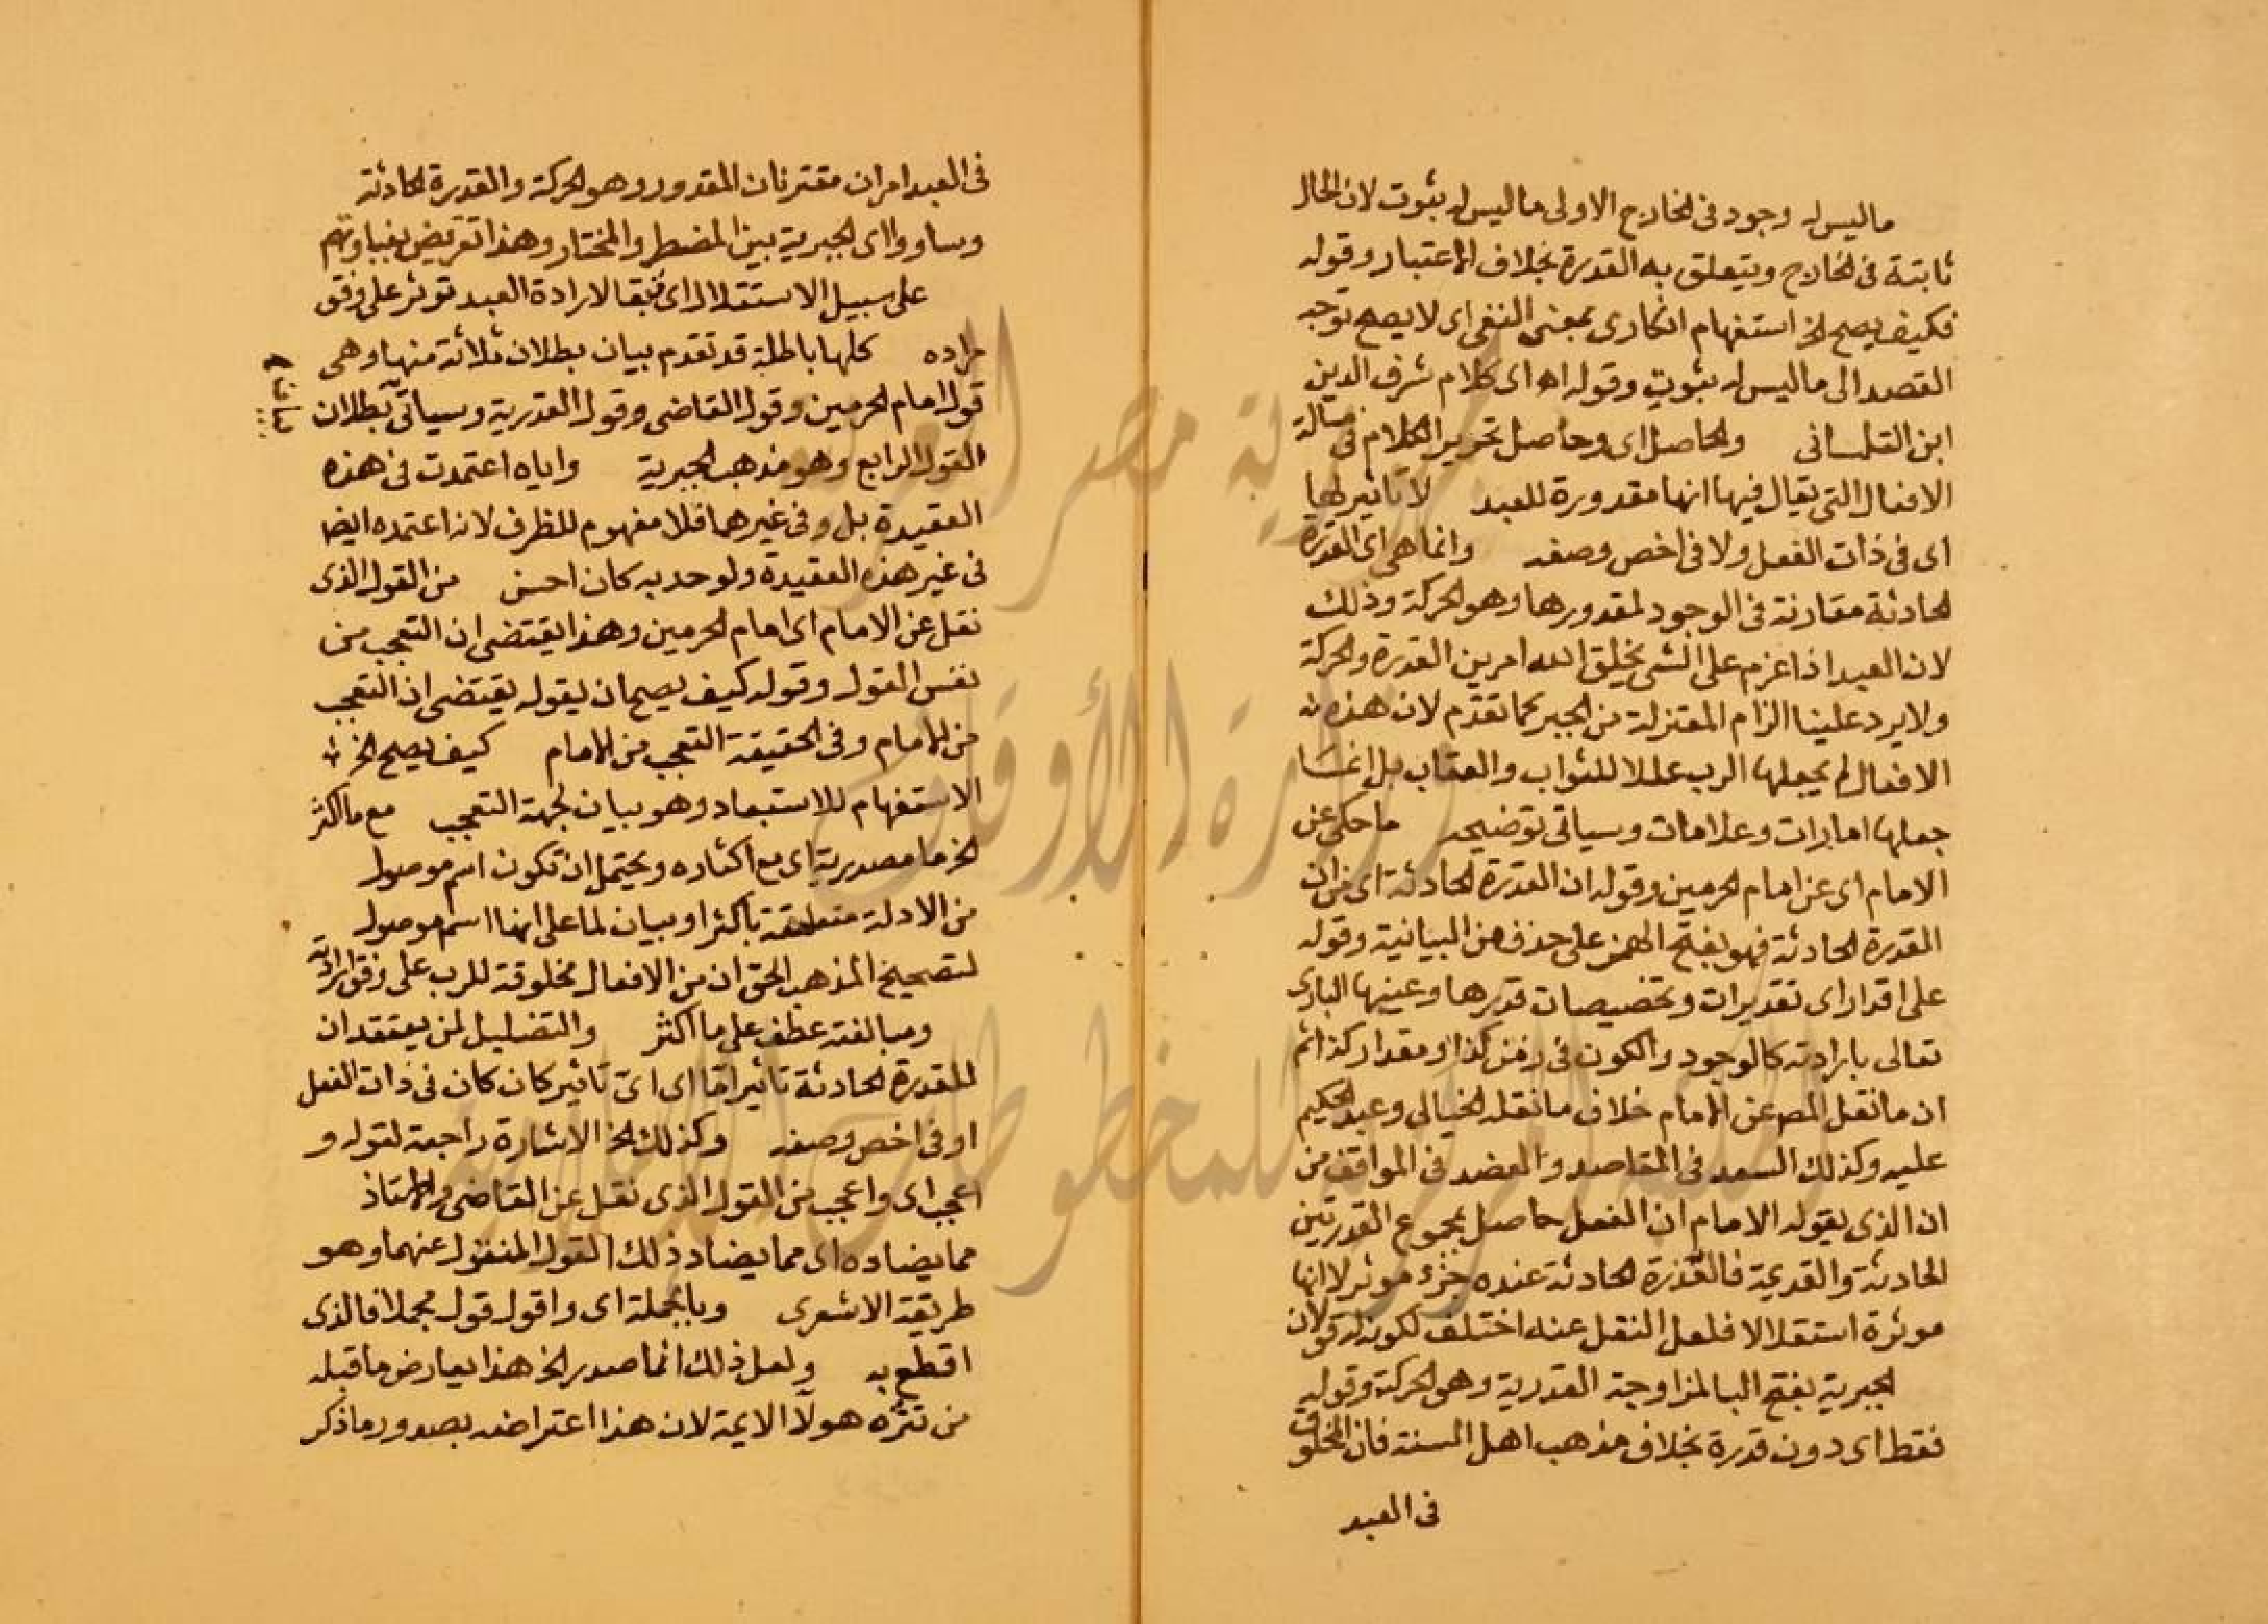 ما ليس له وجود فى الخارج الاولى ما ليس له بثبوت لان الحال
ثابتة فى الخارج ويتعلق به القدرة بخلاف الاعتبار وقوله
فكيف يصح الخ استفهام انكارى بمعنى النفى اى لا يصح توجه
القصد الى ما ليس له بثبوت وقوله اه اى كلام شرف الدين
ابن التلمسانى والحاصل اى وحاصل تحرير الكلام فى مسالة
الافعال التى يقال فيها انها مقدورة للعبد لا تاثير لها
اى فى ذات الفعل ولا فى اخص وصفه وانما هى اى القدرة
الحادثة مقارنة فى الوجود لمقدورها وهو الحركة وذلك
لان العبد اذا عزم على الشى يخلق الله امرين القدرة والحركة
ولا يرد علينا الزام المعتزلة من الجبر كما تقدم لان هذه
الافعال لم يجعلها الرب عللا للثواب والعقاب بل انما
جعلها امارات وعلامات وسياتى توضيحه ما حكى عن
الامام اى عن امام الحرمين وقوله ان القدرة الحادثة اى من ان
القدرة الحادثة فهو بفتح الهمز على حذف من البيانية وقوله
على اقدار اى تقديرات وتخصيصات قدرها وعينها البارى
تعالى بارادته كالوجود والكون فى زمن كذا ومقدار كذا ثم
ان ما نقل المص عن الامام خلاف ما نقله الخيالى وعبد الحكيم
عليه وكذلك السعد فى المقاصد والعضد فى المواقف من
ان الذى يقوله الامام ان الفعل حاصل بمجموع القدرتين
الحادثة والقديمة فالقدرة الحادثة عنده جزء موثر لا انها
موثرة استقلالا فلعل النقل عنه اختلف لكونه له قولان
الجبرية بفتح البا لمزاوجة القدرية وهو الحركة وقوله
فقط اى دون قدرة بخلاف مذهب اهل السنة فان المخلوق
فى العبد
فى العبد امران مقترنان المقدور وهو الحركة والقدرة الحادثة
وساووا اى الجبرية بين المضطر والمختار وهذا تعريض بغباوتهم
على سبيل الاستقلال اى فبقا لارادة العبد توثر على وفق
مراده كلها باطلة قد تقدم بيان بطلان ثلاثة منها وهى
قول امام الحرمين وقول القاضى وقول القدرية وسياتى بطلان
القول الرابع وهو مذهب الجبرية واياه اعتمدت فى هذه
العقيدة بل وفى غيرهما فلا مفهوم للظرف لانه اعتمده ايضا
فى غير هذه العقيدة ولو حد به كان احسن من القول الذى
نقل عن الامام اى امام الحرمين وهذا يقتضى ان التعجب من
نفس القول وقوله كيف يصح ان يقوله يقتضى ان التعجب
من الامام وفى الحقيقة التعجب من الامام كيف يصح الخ
الاستفهام للاستبعاد وهو بيان لجهة التعجب مع ما اكثر
الخ ما مصدرية اى مع اكثاره ويحتمل ان تكون اسم موصول
من الادلة متعلقة باكثر او بيان لما على انها اسم موصول
لتصحيح المذهب الحق ان من الافعال مخلوقة للرب على وفق ارادته
ومبالغته عطف على ما اكثر والتضليل لمن يعتقد ان
للقدرة الحادثة تاثيرا ما اى اى تاثير كان كان فى ذات الفعل
او فى اخص وصفه وكذلك الخ الاشارة راجعة لقوله و
اعجب اى واعجب من القول الذى نقل عن القاضى والاستاذ
مما يضاده اى مما يضاد ذلك القول المنقول عنهما وهو
طريقة الاشعرى وبالجملة اى واقول قول مجملا فالذى
اقطع به ولعل ذلك انما صدر الخ هذا يعارض ما قبله
من تنزه هولا الايمة لان هذا اعتراضه بصدور ما ذكر